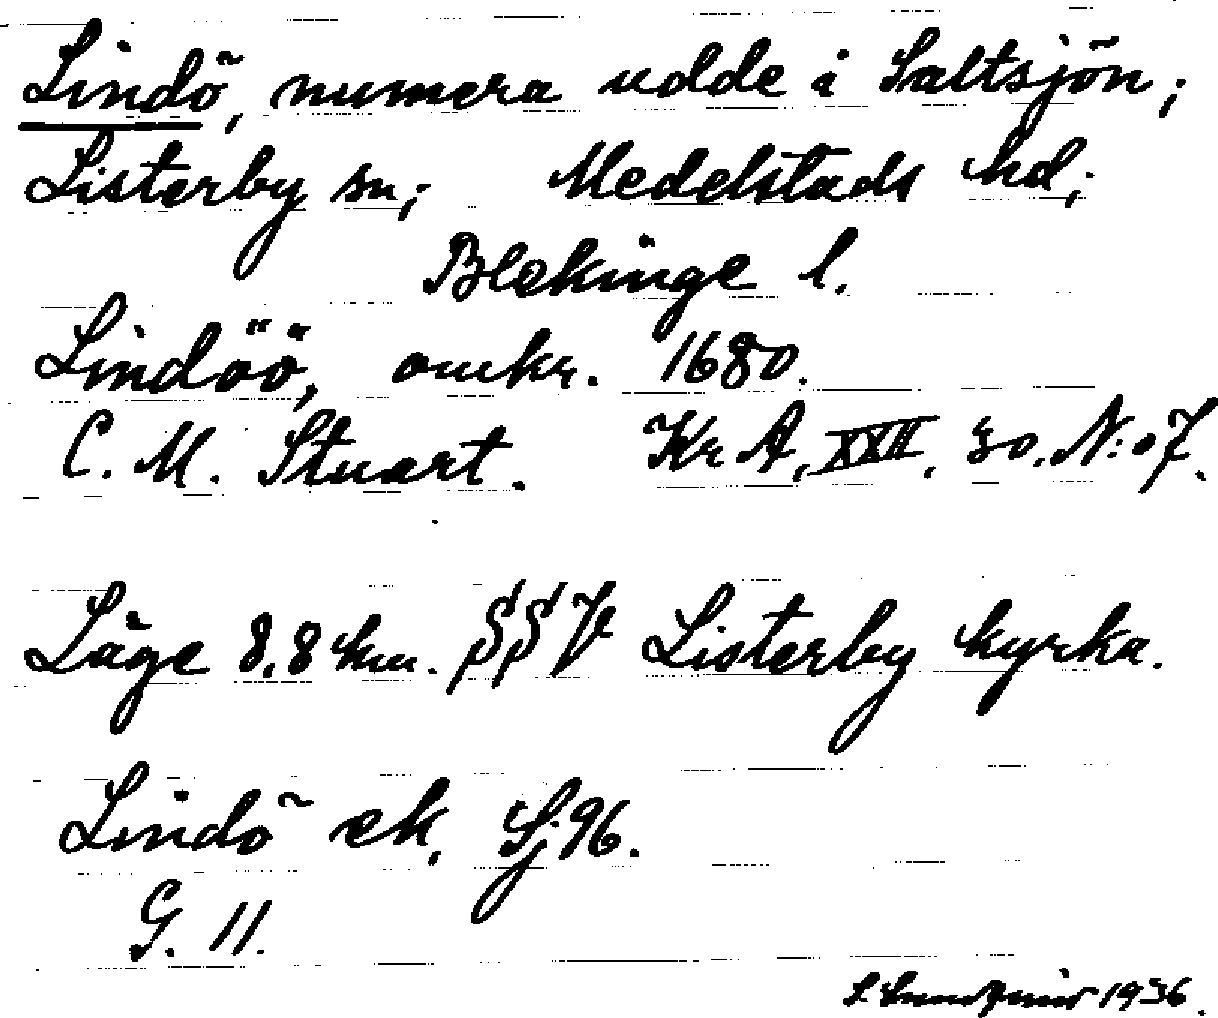 Lindö, numera udde i Saltsjön;
Listerby sn; Medelstads hd;
Blekinge l.
Lindöö, omkr. 1680.
C. M. Stuart. Kr A, XXII, 30. N:o 7.
Läge 8,8 km. SSV Listerby kyrka.
Lindö ek, Sj 96.
G. 11.
1936.